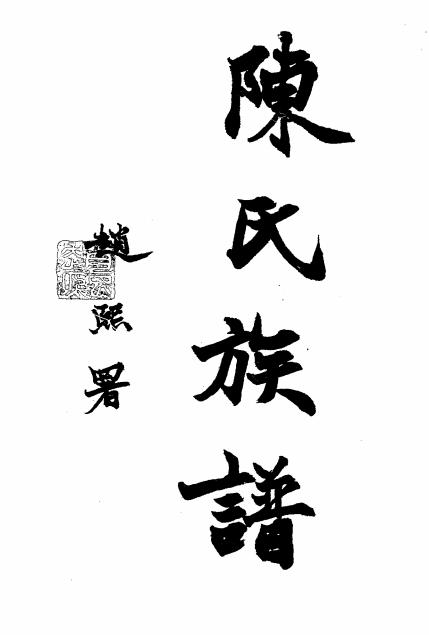 陳氏族譜
趙熙署